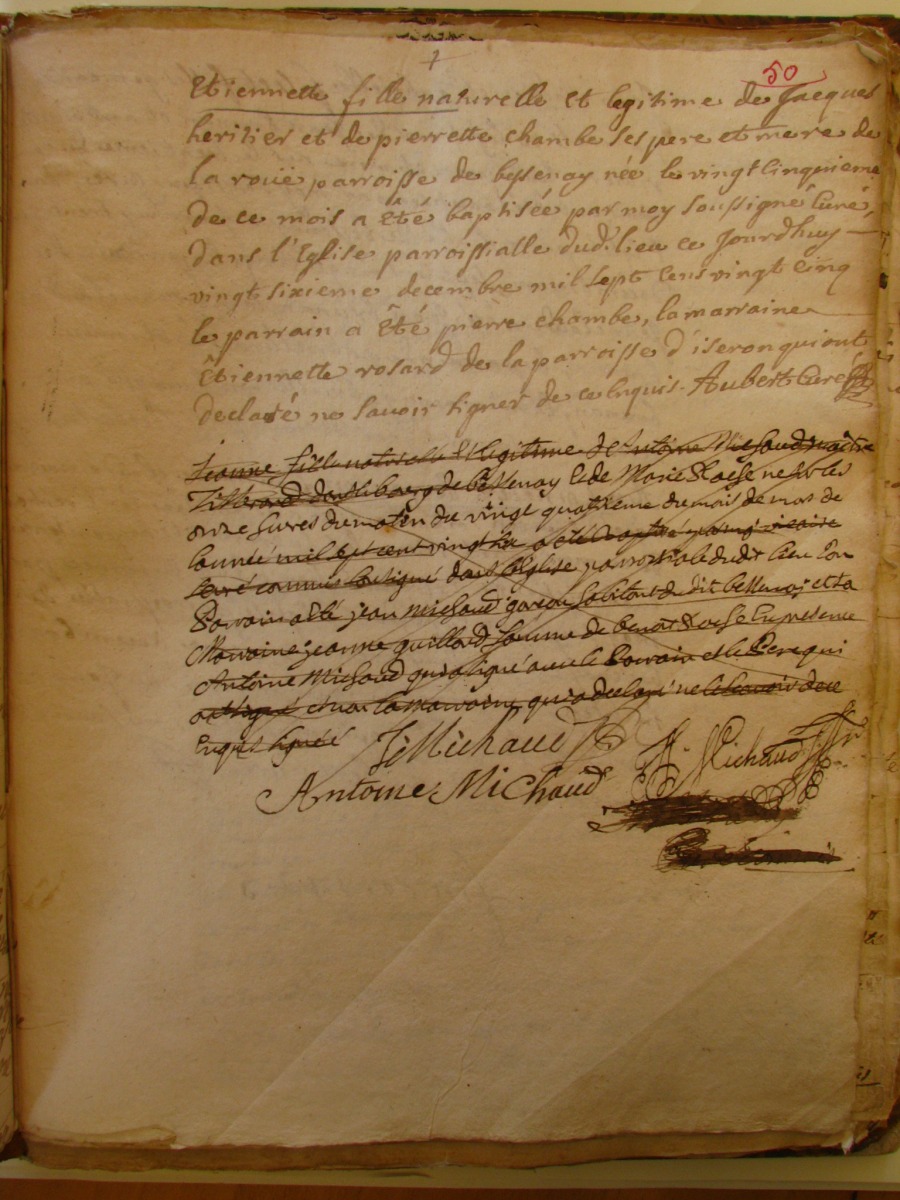 50
Etiennette fille naturelle et legitime de Jacques
heritier et de pierrette chambe ses pere et mere de
la rouë parroisse de bessenay née le vingt cinquieme
de ce mois a êté baptisée par moy soussigné Curé,
dans l'Eglise parroissialle dud. lieu ce jourdhuy
vingt sixieme decembre mil sept cens vingt cinq
le parrain a êté pierre chambe, la marraine
Êtiennette rosard de la parroisse d'iseron qui ont
declaré ne savoir signer de ce enquis. Aubert Curé
Jeanne fille naturelle et legitime de Antoine Michaud maitre
du bourg de bessenay et de Marie nee sur les
onze heures du matin du vingt quatrieme du mois de mars de
lannée mil sept cent vingt six a eté baptisé par moy vicaire
soussigné dans l'Eglise parroissiale dudit lieu son
Parrain a été jean Michaud garcon habitant de dit bessenay et sa
Marraine jeanne guillard femme de benoit en presence
Antoine Michaud qui a signé avec le Parrain et le Pere qui
a signé et non la marraine qui a declaré ne le scavoir de ce
Enquis signéé J Michaud
Michaud
Antoine Michaud